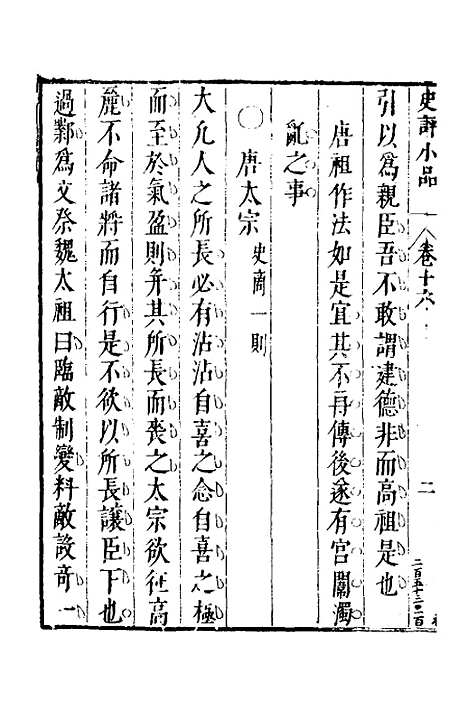 史評小品
卷十六
二
引以爲親臣吾不敢謂建德非而高祖是也
唐祖作法如是宜其不再傳後遂有宮闈濁
亂之事
〇唐太宗 史商一則
大凡人之所長必有沾沾自喜之念自喜之極
而至於氣盈則并其所長而喪之太宗欲征高
麗不命諸將而自行是不欲以所長讓臣下也
過鄴爲文祭魏太祖曰臨敵制變料敵設奇一